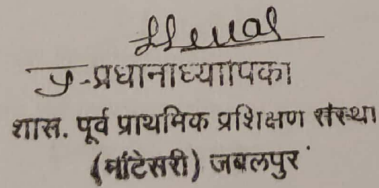 प्र-प्रधानाध्यापिका
शास. पूर्व प्राथमिक प्रशिक्षण संस्था
(मांटेसरी) जबलपुर